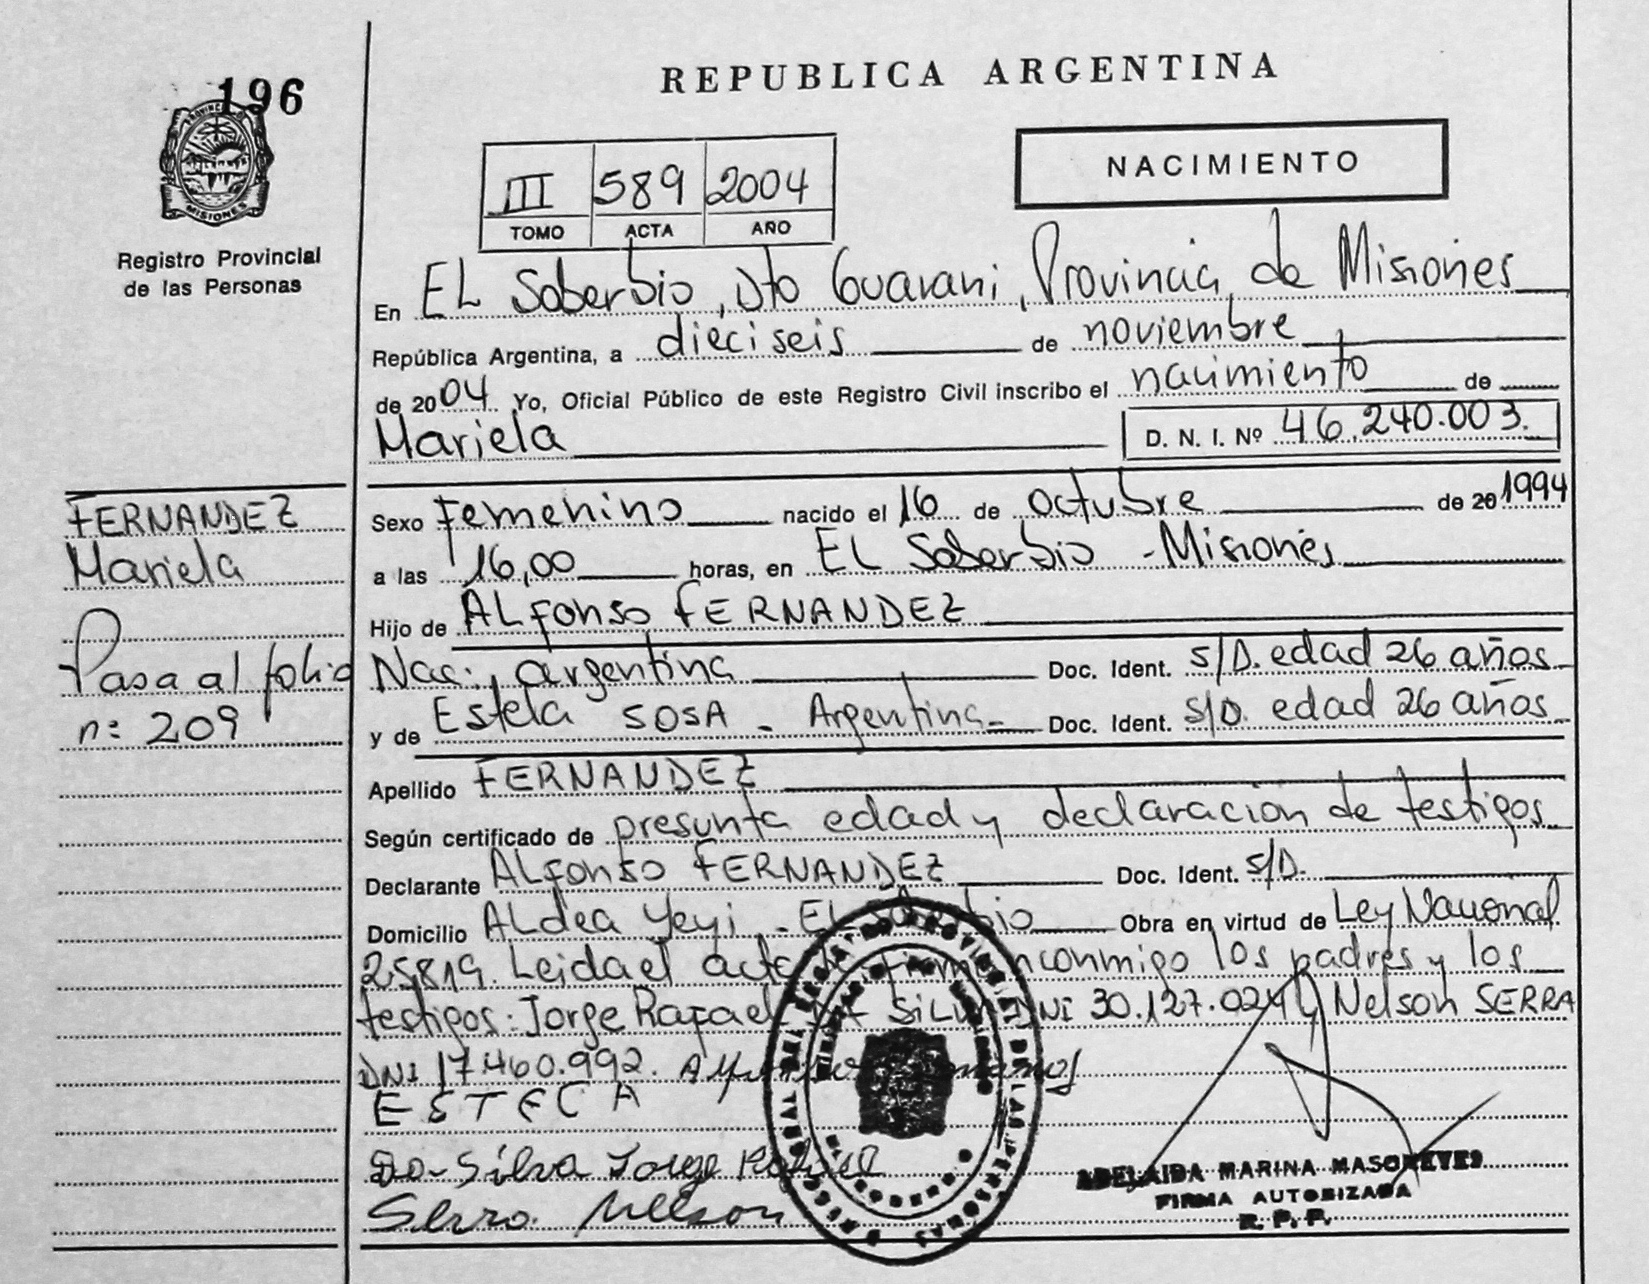 196
MISIONES
Registro Provincial
de las Personas
REPUBLICA ARGENTINA
III 589 2004
TOMO ACTA AÑO
NACIMIENTO
En EL Soberbio, Dto Guarani, Provincia de Misiones
República Argentina, a dieciseis de noviembre
de 2004 Yo, Oficial Público de este Registro Civil inscribo el nacimiento de
Mariela D. N. I. Nº 46.240.003.
Sexo Femenino nacido el 16 de octubre de 20 1994
a las 16,00 horas, en EL Soberbio - Misiones
Hijo de ALfonso FERNANDEZ
Nac: argentina Doc. Ident. S/D. edad 26 años
y de Estela SOSA - Argentina- Doc. Ident. S/D. edad 26 años
Apellido FERNANDEZ
Según certificado de presunta edad y declaracion de testigos
Declarante ALfonso FERNANDEZ Doc. Ident. S/D.
Domicilio ALdea Yeyi - EL Soberbio Obra en virtud de Ley Nacional
25819. Leida el acta firman conmigo los padres y los
testigos: Jorge Rafael SILVA DNI 30.127.024 y Nelson SERRA
DNI 17.460.992.
ESTECA
Do-Silva Jorge Rafael
Serro Nelson
ADELAIDA MARINA
FIRMA AUTORIZADA
R. P. P.
FERNANDEZ
Mariela
Pasa al folio
n: 209